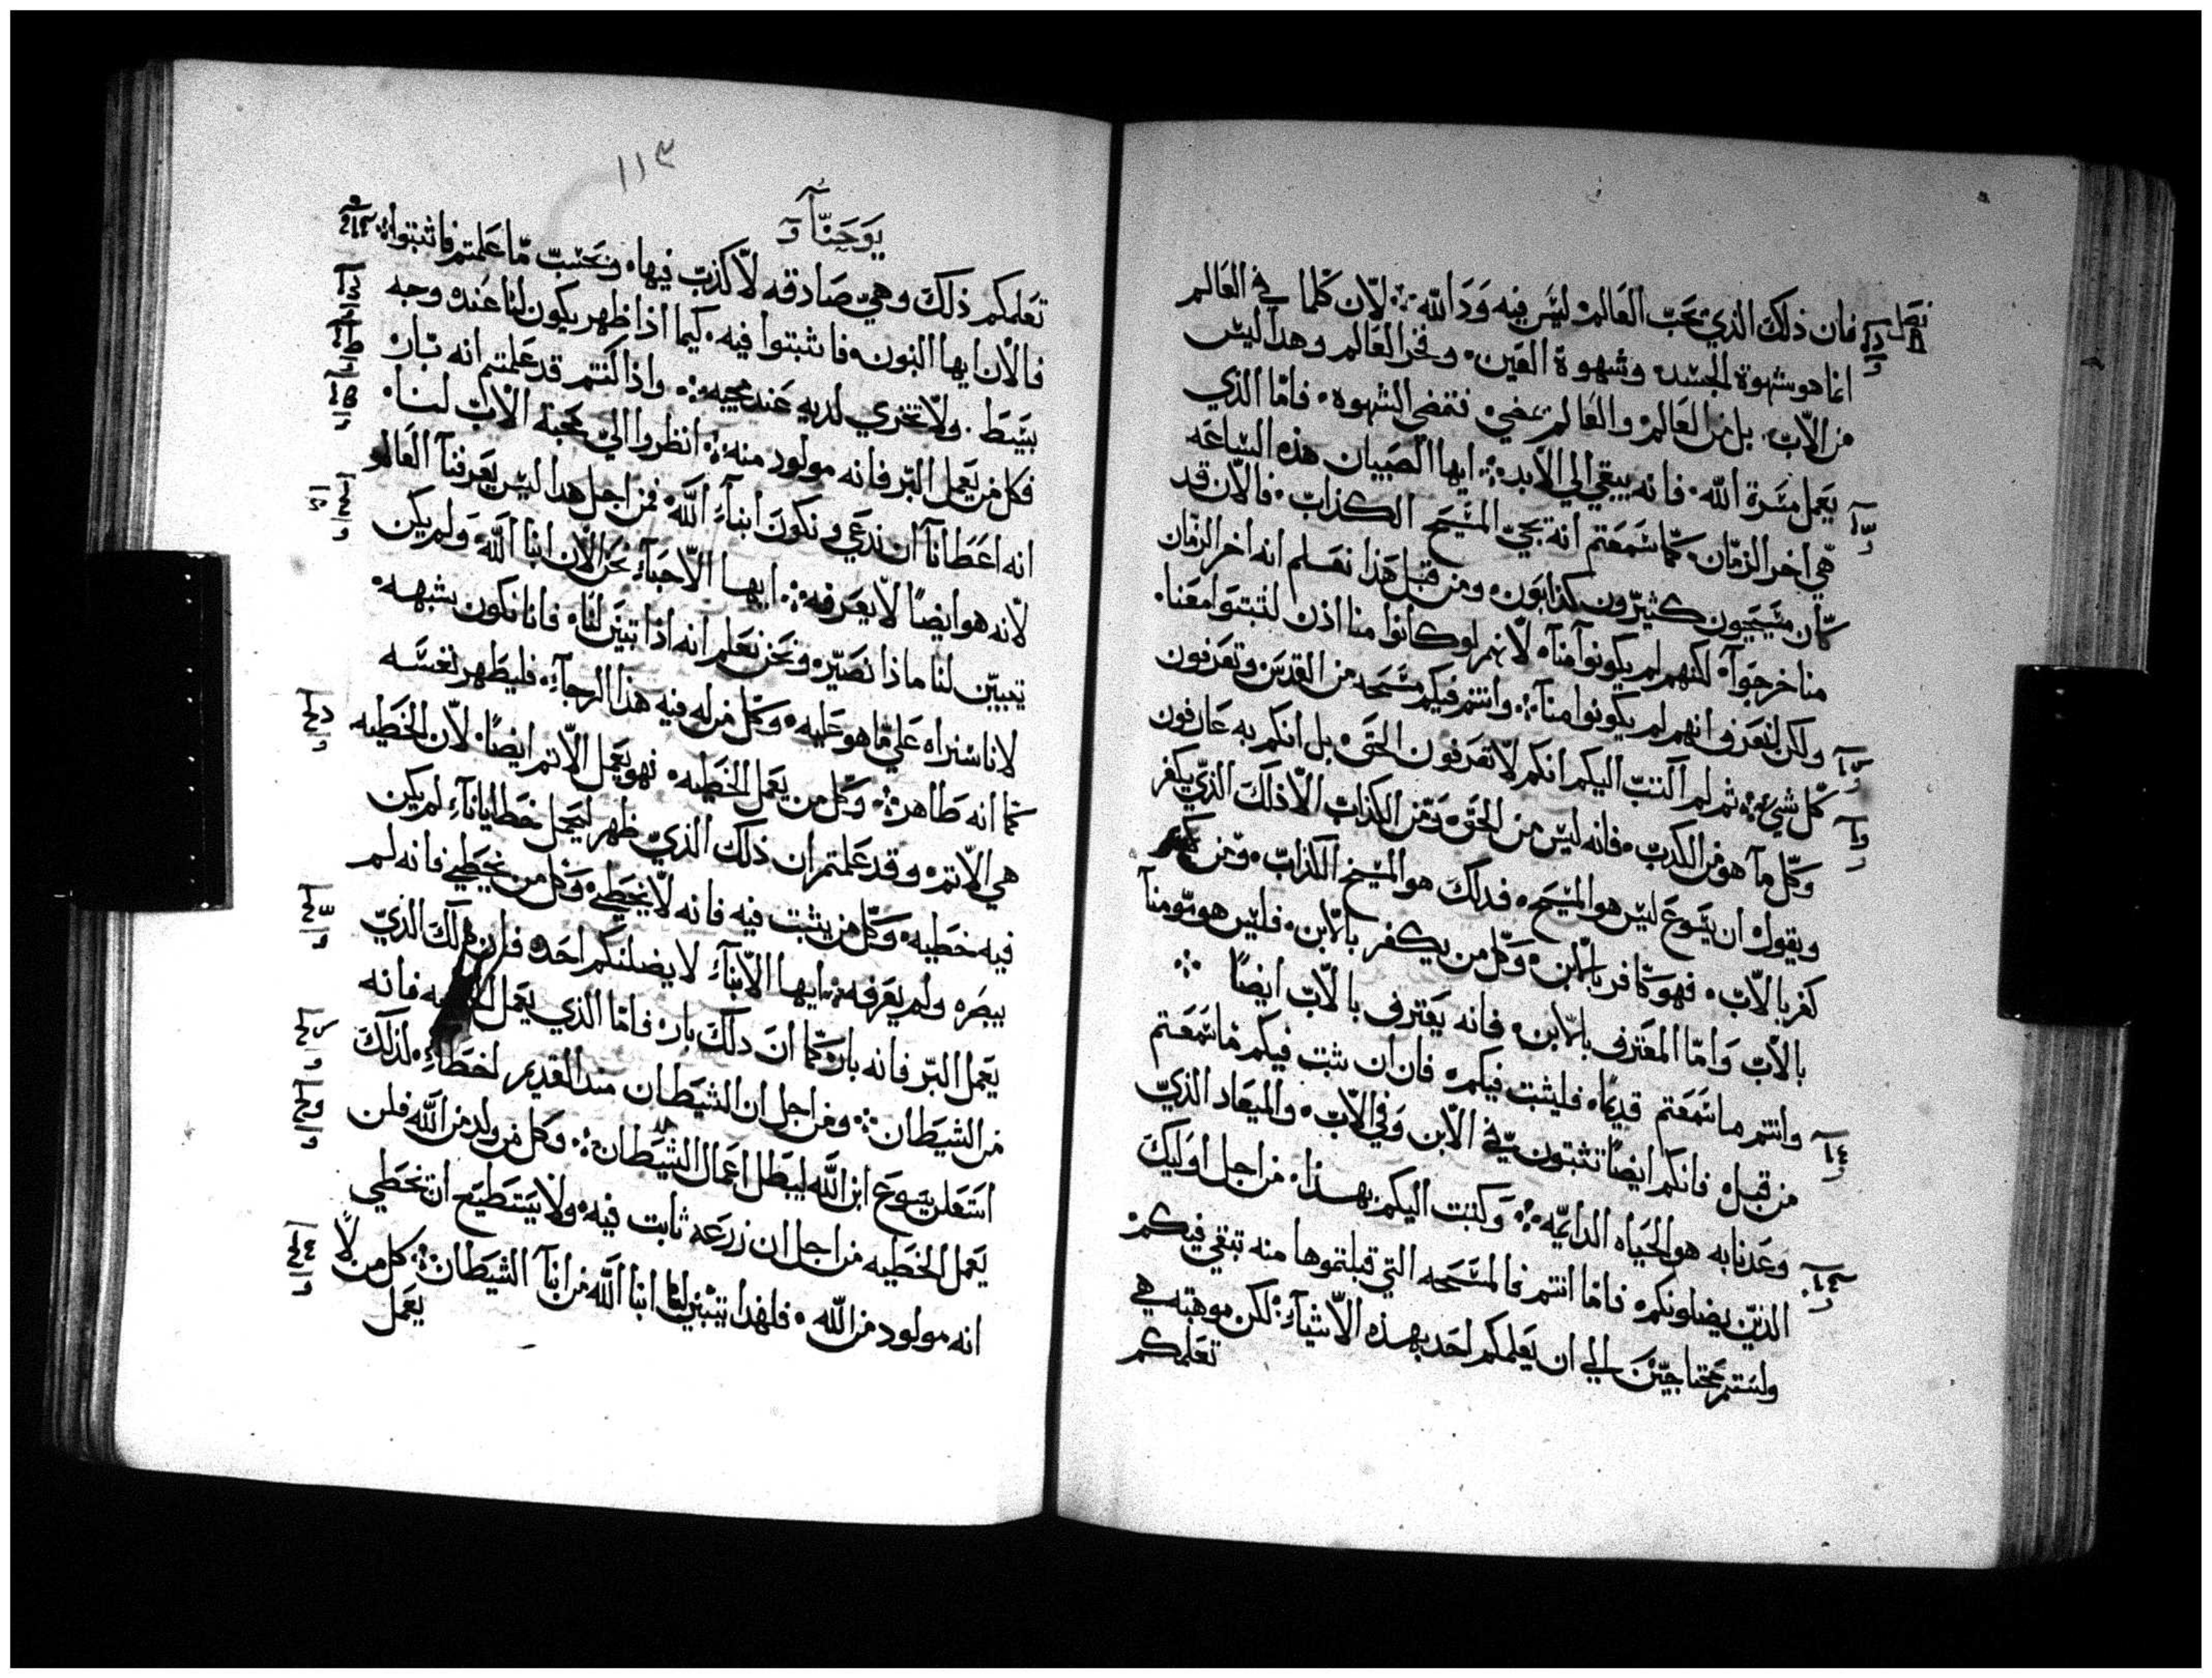 فصل
فان ذلك الذي يحب العالم ليس فيه ود الله ؞ لان كلما في العالم
انما هو شهوة الجسد وشهوة العين وفخر العالم وهدا ليس
من الاب بل من العالم والعالم يمضي فتمضي الشهوه فاما الذي
يعمل مسرة الله فانه يبقي الي الابد ؞ ايها الصبيان هذه الساعه
هي اخر الزمان كما سمعتم انه يجي المسيح الكذاب فالان قد
كان مسيحيون كثيرون كذابون ومن قبل هذا نعلم انه اخر الزمان
منا خرجوا لكنهم لم يكونوا منا لانهم لو كانوا منا اذن لثبتوا معنا
ولكن لنعرف انهم لم يكونوا منا ؞ وانتم فيكم مسحه من القدس وتعرفون
كل شي ؞ ثم لم اكتب اليكم انكم لا تعرفون الحق بل انكم به عارفون
وكل ما هو من الكدب فانه ليس من الحق ومن الكذاب الا ذلك الذي يكفر
ويقول ان يسوع ليس هو المسيح فدلك هو المسيح الكذاب ومن
كفر بالاب فهو كافر بالابن وكل من يكفر بالابن فليس هو مومنا
بالاب واما المعترف بالابن فانه يعترف بالاب ايضا ؞
وانتم ما سمعتم قديما فليثبت فيكم فان ان ثبت فيكم ما سمعتم
من قبل فانكم ايضا تثبتون في الابن وفي الاب والميعاد الذي
وعدنا به هو الحياه الدايمه ؞ وكتبت اليكم بهذا من اجل اوليك
الذين يضلونكم فاما انتم فالمسحه التي قبلتموها منه تبقي فيكم
ولستم محتاجين الي ان يعلمكم احد بهذه الاشياء ؞ لكن موهبته هي
تعلمكم
١١٣
يوحنا
تعلمكم ذلك وهي صادقه لا كذب فيها وبحسب ما علمتم فاثبتوا ؞
فالان ايها البنون فاثبتوا فيه كيما اذا ظهر يكون لنا عنده وجه
بسط ولا نخزي لديه عند مجيه ؞ واذا كنتم قد علمتم انه بار
فكل من يعمل البر فانه مولود منه ؞ انظروا الي محبة الاب لنا
انه اعطانا ان ندعي ونكون ابناء الله فمن اجل هدا ليس يعرفنا العالم
لانه هو ايضا لا يعرفه ؞ ايها الاحباء نحن الان ابنا الله ولم يكن
تبين لنا ماذا نصير ونحن نعلم انه اذا تبين لنا فانا نكون بشبهه
لانا سنراه علي ما هو عليه وكل من له فيه هذا الرجاء فليطهر نفسه
كما انه طاهر ؞ وكل من يعمل الخطيه فهو يعمل الاتم ايضا لان الخطيه
هي الاتم وقد علمتم ان ذلك الذي ظهر ليحمل خطايانا لم يكن
فيه خطيه وكل من يثبت فيه فانه لا يخطي وكل من يخطي فانه لم
يبصره ولم يعرفه ؞ ايها الابناء لا يضلنكم احد فان ذلك الذي
يعمل البر فانه بار كما ان دلك بار فاما الذي يعمل الخطيه فانه
من الشيطان ؞ ومن اجل ان الشيطان مند القديم اخطاء لذلك
استعلن يسوع ابن الله ليبطل اعمال الشيطان ؞ وكل من ولد من الله فلن
يعمل الخطيه من اجل ان زرعه ثابت فيه ولا يستطيع ان يخطي
انه مولود من الله فلهذا يتبين لنا ابنا الله من ابنا الشيطان ؞ كل من لا
يعمل